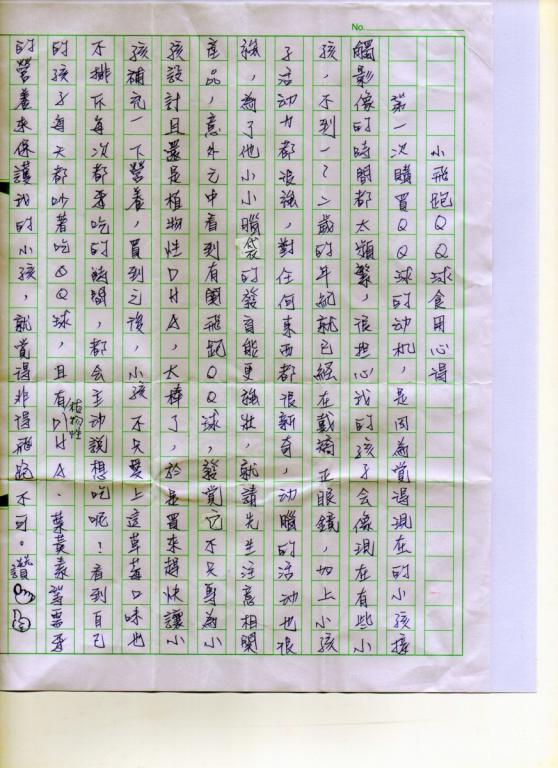 No.
小飛跑QQ球食用心得
第一次購買QQ球的动机，是因為覺得現在的小孩接
觸影像的時間都太頻繁，很担心我的孩子会像現在有些小
孩，不到1~2歲的年紀就已經在戴矯正眼鏡，加上小孩
子活动力都很強，對任何東西都很新奇，动腦的活动也很
強，為了他小小腦袋的發育能更強壯，就請先生注意相關
產品，意外之中看到有関飛跑QQ球，發覚它不只專為小
孩設計且還是植物性DHA，太棒了，於是買來趕快讓小
孩補充一下營養，買到之後，小孩不只愛上這草莓口味也
不排斥每次都要吃的時間，都会主动說想吃呢！看到自己
的孩子每天都吵著吃QQ球，且有植物性DHA．葉黃素等需要
的營養來保護我的小孩，就覚得非得飛跑不可。讚